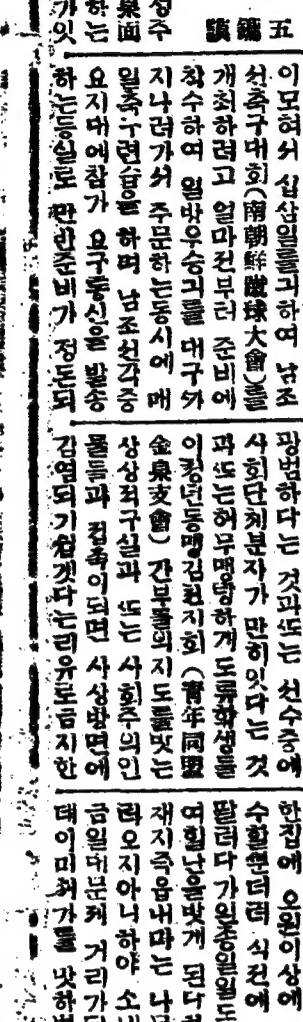 성주
泉面
하는
가잇
이모혀서 십삼일를긔하여 남조
선축구대회(南朝鮮蹴球大會)를
개최하려고 얼마전부터 준비에
착수하여 일방우승긔를 대구까
지나려가서 주문하는동시에 매
일축구련습을 하며 남조선각중
요지대에참가 요구통신을 발송
하는등실로 만반준비가 정돈되
평범하다는 것과또는 선수중에
사회단체분자가 만히잇다는 것
과또는허무맹랑하게도류학생들
이청년동맹김천지회 (靑年同盟
金泉支會) 간부들의지도를밧는
상상적구실과 또는 사회주의인
물들과 접촉이되면 사상방면에
감염되기쉽겟다는리유로금지한
한집에 오원이상에
수힐뿐더러 식전에
팔러다가왼종일일도
된다
나무
러오지아니하야
금일대문제 거리가